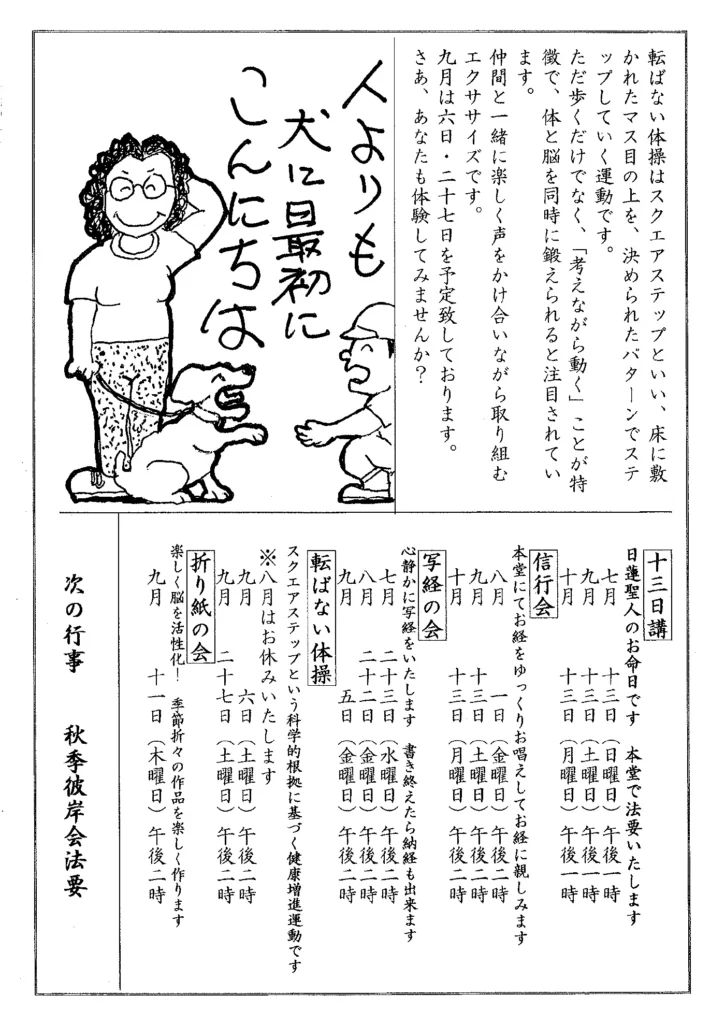 転ばない体操はスクエアステップといい、床に敷
かれたマス目の上を、決められたパターンでステ
ップしていく運動です。
ただ歩くだけでなく、「考えながら動く」ことが特
徴で、体と脳を同時に鍛えられると注目されてい
ます。
仲間と一緒に楽しく声をかけ合いながら取り組む
エクササイズです。
九月は六日・二十七日を予定致しております。
さあ、あなたも体験してみませんか？
人よりも
犬に最初に
こんにちは
十三日講
日蓮聖人のお命日です 本堂で法要いたします
七月 十三日（日曜日）午後一時
九月 十三日（土曜日）午後一時
十月 十三日（月曜日）午後一時
信行会
本堂にてお経をゆっくりお唱えしてお経に親しみます
八月 一日（金曜日）午後二時
九月 十三日（土曜日）午後二時
十月 十三日（月曜日）午後二時
写経の会
心静かに写経をいたします 書き終えたら納経も出来ます
七月 二十三日（水曜日）午後二時
八月 二十二日（金曜日）午後二時
九月 五日（金曜日）午後二時
転ばない体操
スクエアステップという科学的根拠に基づく健康増進運動です
※八月はお休みいたします
九月 六日（土曜日）午後二時
九月 二十七日（土曜日）午後二時
折り紙の会
楽しく脳を活性化！ 季節折々の作品を楽しく作ります
九月 十一日（木曜日）午後二時
次の行事 秋季彼岸会法要